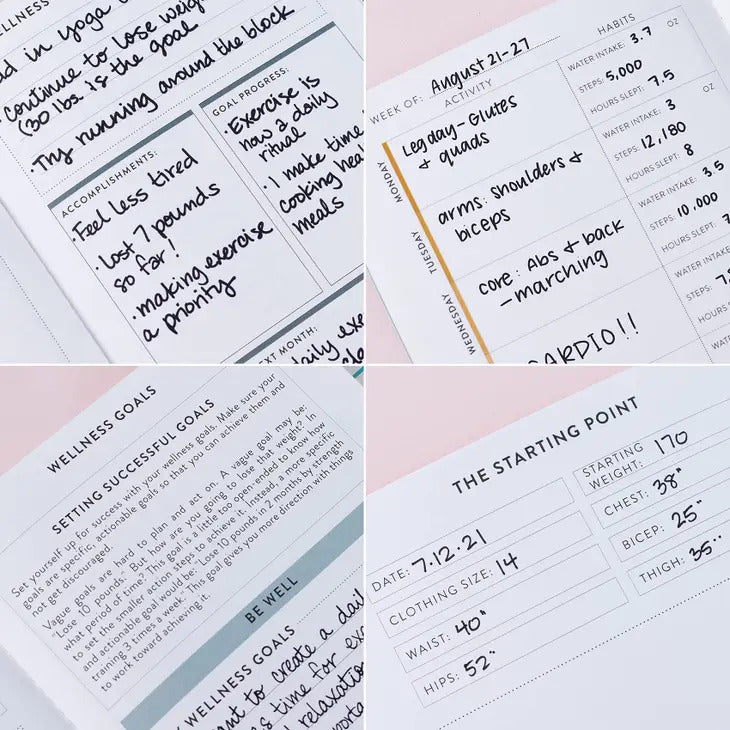 WELLNESS
in yoga
Continue to lose
(30 lbs. is the goal
• Try running around the block
ACCOMPLISHMENTS:
• Feel less tired
• Lost 7 pounds
so far!
• making exercise
a priority
GOAL PROGRESS:
• Exercise is
now a daily
ritual
• I make time
cooking
meals
MONTH:
daily
WEEK OF: August 21-27
ACTIVITY
HABITS
MONDAY
Leg day - Glutes
& quads
WATER INTAKE: 3.7 OZ
STEPS: 5,000
HOURS SLEPT: 7.5
TUESDAY
arms: shoulders &
biceps
WATER INTAKE: 3 OZ
STEPS: 12,180
HOURS SLEPT: 8
WEDNESDAY
core: Abs & back
- marching
WATER INTAKE: 3.5
STEPS: 10,000
HOURS SLEPT:
CARDIO!!
WATER INTAKE:
STEPS:
HOURS
WELLNESS GOALS
SETTING SUCCESSFUL GOALS
Set yourself up for success with your wellness goals. Make sure your
goals are specific, actionable goals so that you can achieve them and
not get discouraged.
Vague goals are hard to plan and act on. A vague goal may be:
"Lose 10 pounds." But how are you going to lose that weight? In
what period of time? This goal is a little too open-ended to know how
to set the smaller action steps to achieve it. Instead, a more specific
and actionable goal would be: "Lose 10 pounds in 2 months by strength
training 3 times a week." This goal gives you more direction with things
to work toward achieving it.
BE WELL
WELLNESS GOALS
to create a
time for
relaxation
THE STARTING POINT
DATE: 7.12.21
CLOTHING SIZE: 14
WAIST: 40"
HIPS: 52"
STARTING
WEIGHT: 170
CHEST: 38"
BICEP: 25"
THIGH: 35"